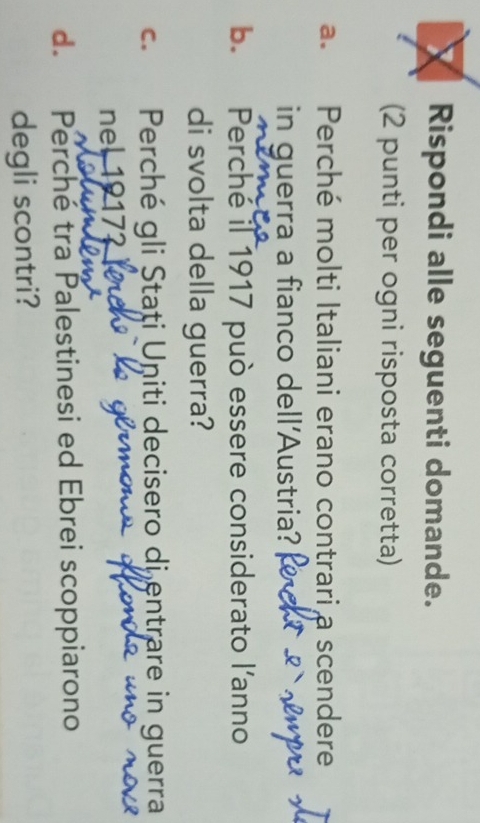 Rispondi alle seguenti domande.
(2 punti per ogni risposta corretta)
a. Perché molti Italiani erano contrari a scendere
in guerra a fianco dell'Austria? Perche e' sempre
nemico
b. Perché il 1917 può essere considerato l'anno
di svolta della guerra?
c. Perché gli Stati Uniti decisero di entrare in guerra
nel 1917? Perche' la germania affonda una nave
statunitense
d. Perché tra Palestinesi ed Ebrei scoppiarono
degli scontri?